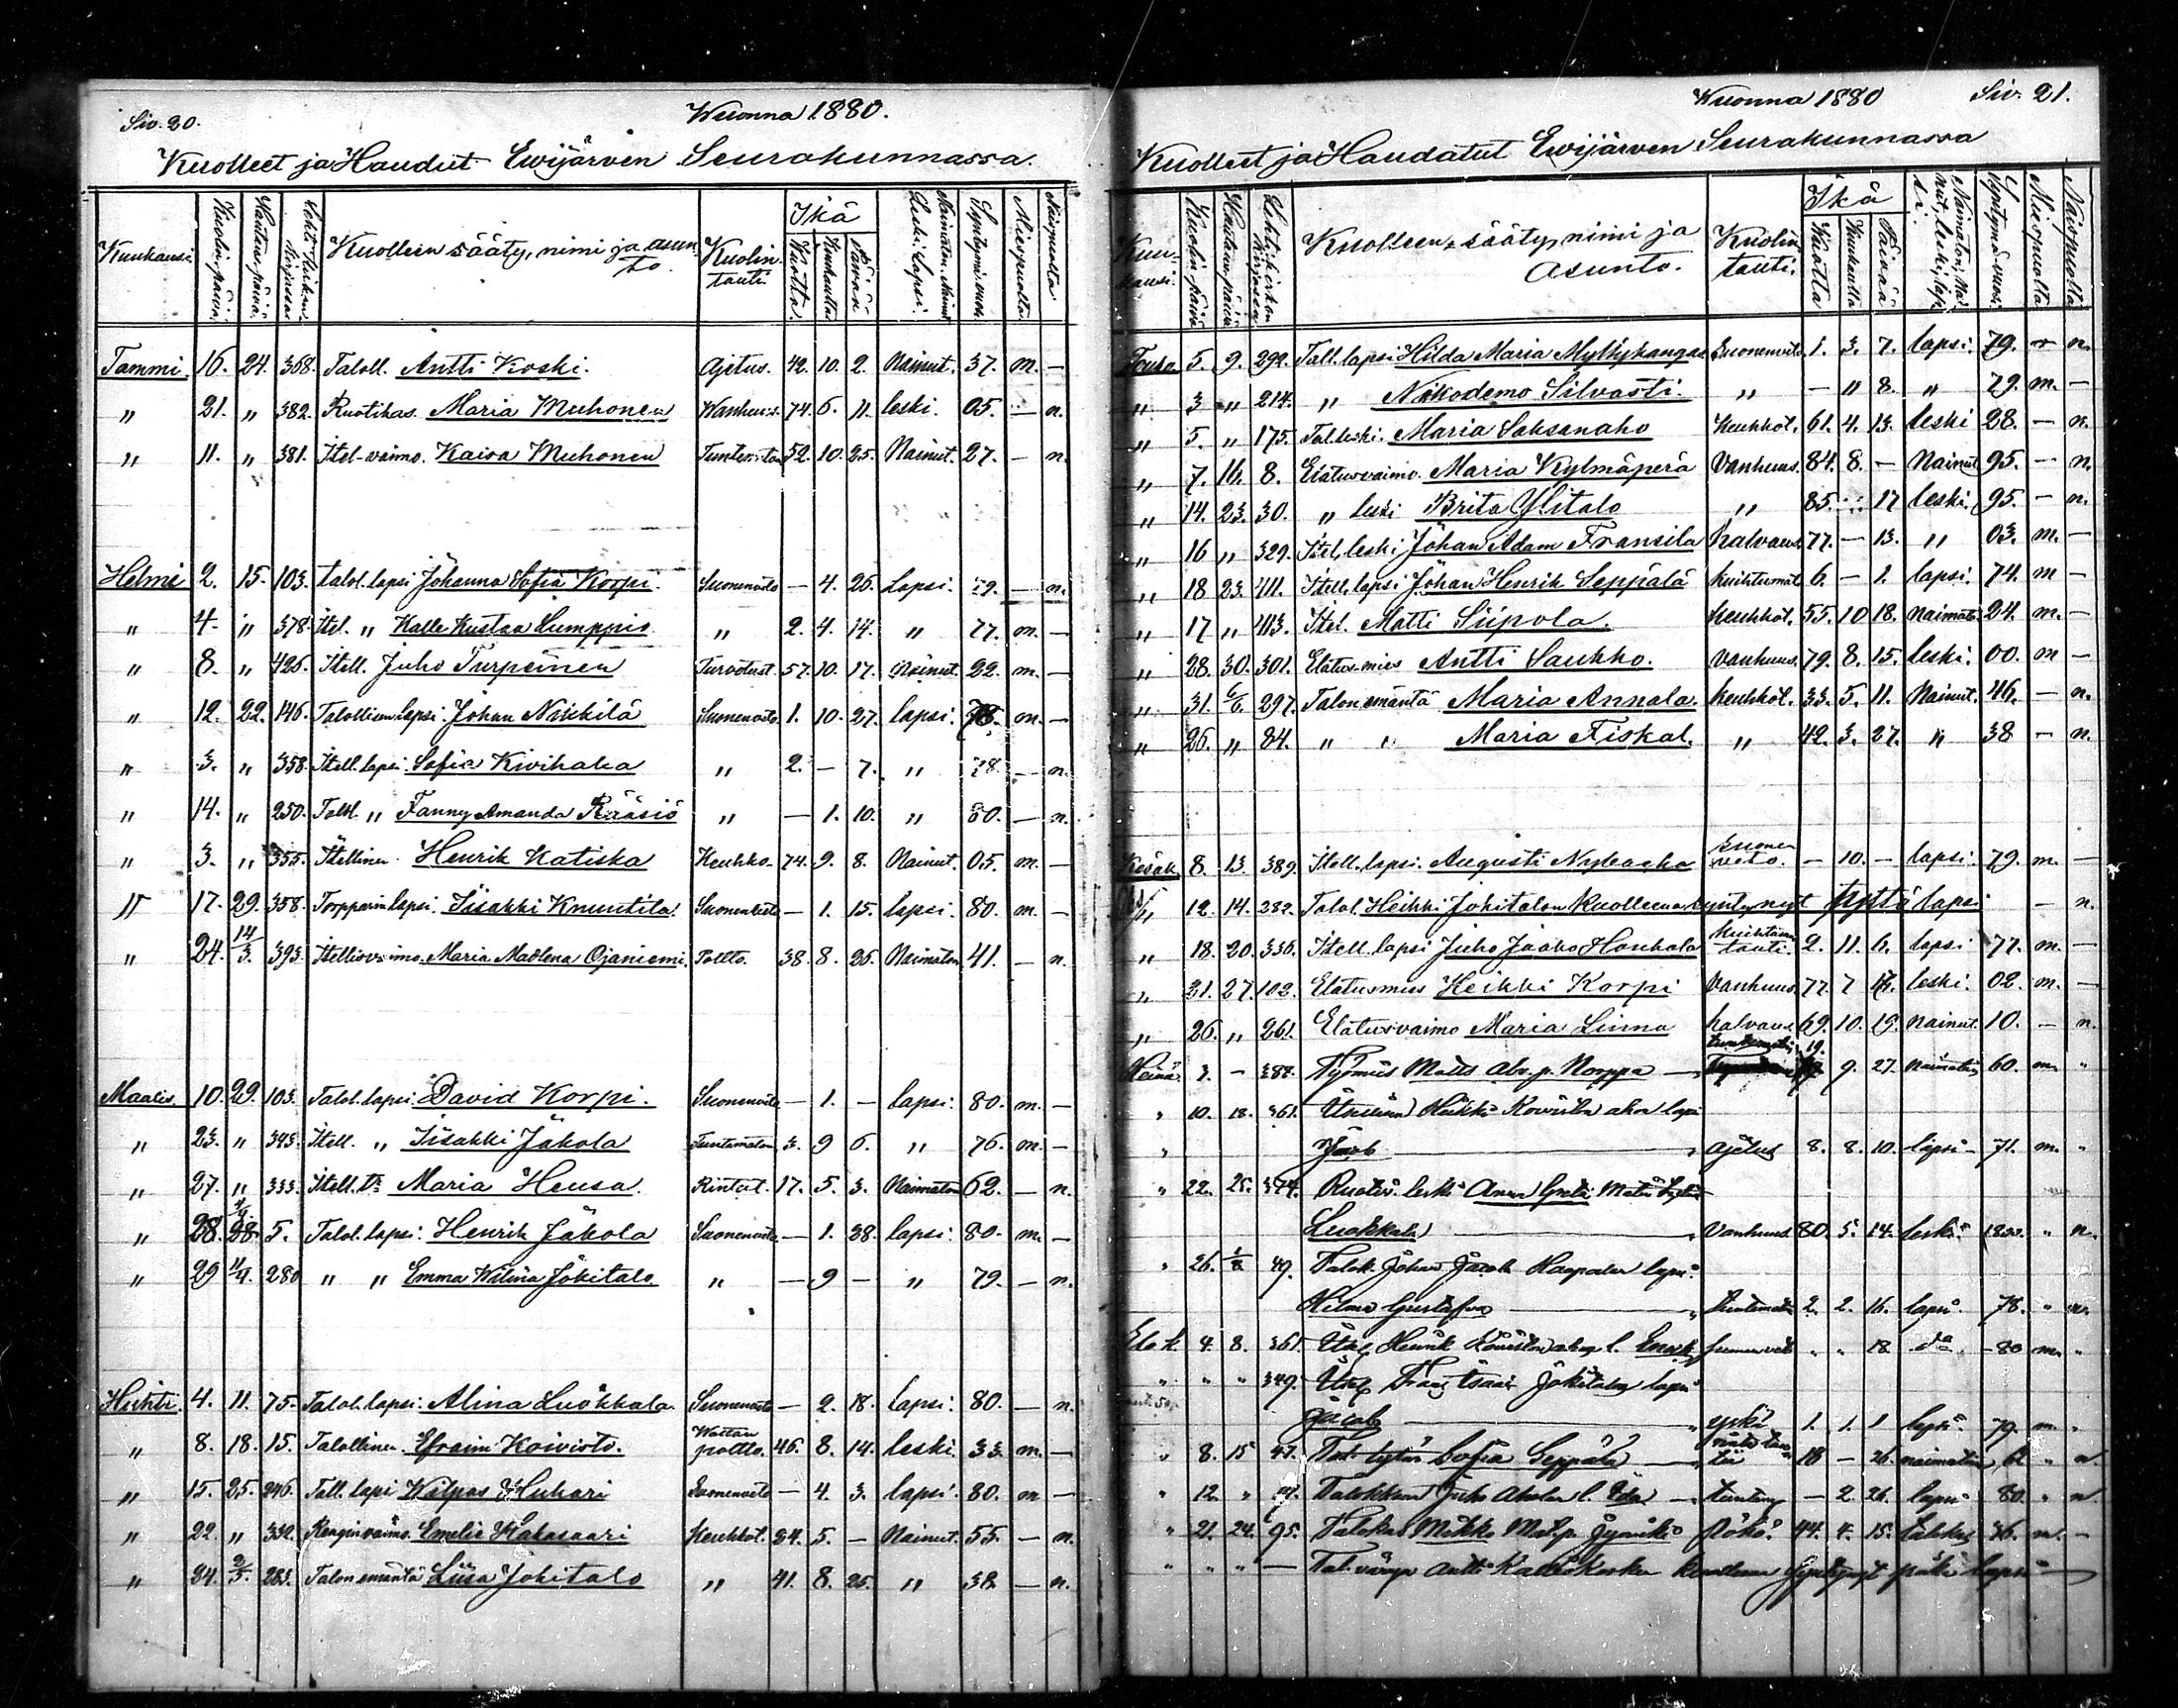 Siv. 20.
Wuonna 1880.
Kuolleet ja Haudut Ewijärven Seurakunnassa.
Kuukausi Kuolin-päivä Hautaus-päivä Lehti Kirkon kirjassa Kuolleen sääty, nimi ja asunto. Kuolin tauti. Ikä Vuotta Kuukautta Päivää Naimaton, Nainut Leski, Lapsi. Syntymä vuosi Miespuolta Naispuolta
Tammi 16. 24. 368. Taloll. Antti Koski. Ajetus. 42. 10. 2. Nainut. 37. m. —
" 21. " 382. Ruotikas. Maria Muhonen Wanhuus. 74. 6. 11. leski. 05. — n.
" 11. " 381. Itel-vaimo. Kaisa Muhonen 52. 10. 25. Nainut. 27. — n.
Helmi 2. 15. 103. talol. lapsi Johanna Sofia Korpi. Suonenveto — 4. 26. Lapsi. 79. — n.
" 4. " 378. Itel. " Kalle Kustaa Lumppio " 2. 4. 14. " 77. m. —
" 8. " 426. Itell. Juho Turpeinen Turvotust. 57. 10. 17. Nainut. 22. m. —
" 12. 22. 146. Talollisen lapsi. Johan Nikkilä Suonenveto 1. 10. 27. lapsi. 78. m. —
" 3. " 358. Itell. lapsi. Sofia Kivihaka " 2. — 7. " 78. — n.
" 14. " 250. Talol. " Fanny Amanda Rääsiö " — 1. 10. " 80. — n.
" 3. " 355. Itellinen. Henrik Katiska Keuhko. 74. 9. 8. Nainut. 05. m. —
" 17. 29. 358. Torpparin lapsi. Iisakki Knuutila. Suonenveto — 1. 15. lapsi. 80. m. —
" 24. 14/3. 393. Maria Madlena Ojaniemi. Poltto. 38. 8. 26. Naimaton 41. — n.
Maalis. 10. 29. 103. Talol. lapsi. David Korpi. Suonenveto — 1. — lapsi. 80. m. —
" 23. " 343. Itell. " Iisakki Jäkola Tuntematon 3. 9 6. " 76. m. —
" 27. " 333. Itell. Maria Heusa. Rintat. 17. 5. 3. Naimaton 62. — n.
" 28. 5. Talol. lapsi. Henrik Jäkola Suonenveto — 1. 28. lapsi. 80. m. —
" 29 11/4. 280 " " Emma Wilina Jokitalo " — 9 — " 79. — n.
Huhti. 4. 11. 75. Talol. lapsi. Alina Luokkala. Suonenveto — 2. 18. lapsi. 80. — n.
" 8. 18. 15. Talollinen. Efraim Koivisto. Wattan poltto. 46. 8. 14. leski. 33. m. —
" 15. 25. 246. Tall. lapi Wilpas Huhari Suonenveto — 4. 3. lapsi. 80. m —
" 22. " 332. Renginvaimo. Emelie Hakasaari Keuhkot. 24. 5. — Nainut. 55. — n.
" 24. 2/5. 283. Talon emäntä Liisa Jokitalo " 41. 8. 25. " 38. — n.
Wuonna 1880
Siv. 21.
Kuolleet ja Haudatut Ewijärven Seurakunnassa
Kuu-kausi. Kuolin-päivä Hautaus-päivä Lehti kirkon kirjassa Kuolleen, sääty, nimi ja Asunto. Kuolin tauti. Ikä Vuotta Kuukautta Päivää Naimaton, Nainut, leski, lapsi. Syntymä vuosi. Miespuolta Naispuolta
Touko 5. 9. 292. Tall. lapsi Hilda Maria Myllykangas Suonenveto 1. 3. 7. lapsi. 79. — n.
" 3 " 214. " Nikodemo Silvasti. " — " 8. " 79. m. —
" 5. " 175. Tal. leski. Maria Saksanaho Keuhkot. 61. 4. 13. leski 28. — n.
" 7. 16. 8. Elatusvaimo. Maria Kylmäperä Vanhuus. 84. 8. — Nainut 95. — n.
" 14. 23. 30. " leski Brita Ylitalo " 85. 17 leski. 95. — n.
" 16 " 329. Itel. leski Johan Adam Fransila halvaus. 77. — 13. " 03. m. —
" 18 23. 411. Itell. lapsi Johan Henrik Seppälä kuihtumat. 6. — 1. lapsi. 74. m —
" 17 " 413. Itel. Matti Siipola. keuhkot. 55. 10 18. naimato. 24. m. —
" 28. 30. 301. Elatusmies Antti Saukko. Vanhuus. 79. 8. 15. leski. 00. m —
" 31. 6/6 297. Talon emäntä Maria Annala. keuhkot. 33. 5. 11. Nainut. 46. — n.
" 26. " 84. " " Maria Fiskal. " 42. 3. 27. " 38 — n.
Kesäk. 8. 13. 389. Itell. lapsi. Augusti Nybacka Suonenveto. — 10. — lapsi. 79. m. —
" 12. 14. 282. Talol. Heikki Jokitalon kuolleena syntynyt tyttö lapsi — n.
" 18. 20. 336. Itell. lapsi Juho Jaako Honkola kuihtumatauti. 2. 11. 6. lapsi 77. m. —
" 21. 27. 102. Elatusmies Heikki Korpi Vanhuus. 77. 7 leski. 02. m. —
" 26. " 261. Elatusvaimo Maria Linna halvaus 69. 10. 19. nainut. 10. — n.
Heinä 3. — Matts Abr. p. Norppa 19. 9. 27. naimatoin 60. m. "
" 10. 18. 361. Heikki lapsi
" Jacob Ajetus 8. 8. 10. lapsi 71. m. "
" 22. 25. leski Anna Greta
Luokkala Vanhuus 80. 5. 14. leski 1800. " n.
" 26. 49. Talok. Johan Jacob Haapalan lapsi.
Hilma Gustafva 2. 2. 16. lapsi. 78. " n.
Elok. 4. 8. 361. Henrik " " 18. 80 m. "
" " " 349. Jokitalon lapsi
Jacob yskä 1. 1. 1 lapsi 79. m. "
" 8. 15 47. Tal. tytär Sofia Seppälä 18 — 26. naimatoin 62 " n.
" 12. " Juho Aholan l. Ida — 2. 26. lapsi 80. " n.
" 21. 24. 95. Mikko 44. 4. 15. 36. m. —
" " " — Antti syntynyt poika lapsi